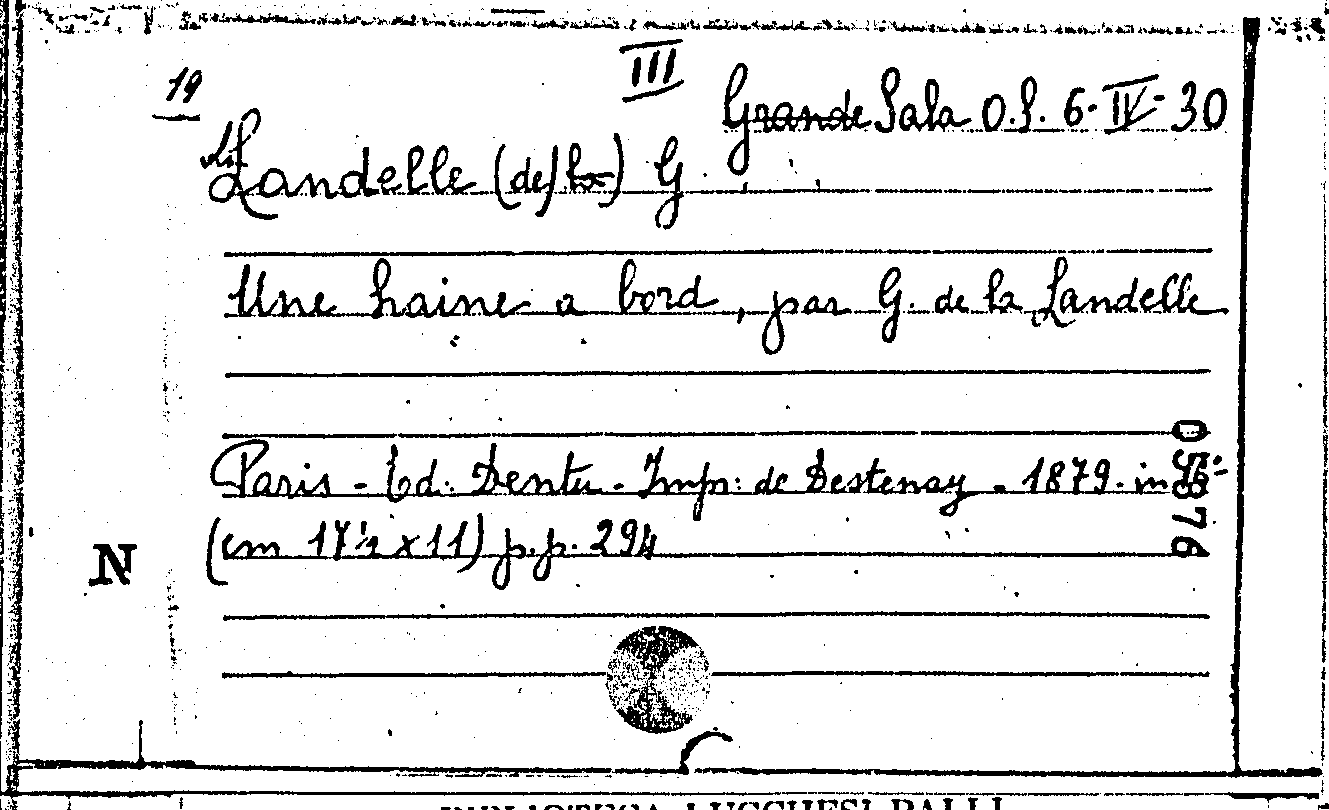 III
19
Grande Sala O.S. 6-IV-30
La Landelle (de) la) G.
Une haine a bord, par G. de la Landelle
Paris - Ed. Dentu - Imp: de Destenay - 1879. in
(cm 17½ x 11) p.p. 294
N
BIBLIOTECA LUCCHESI PALLI